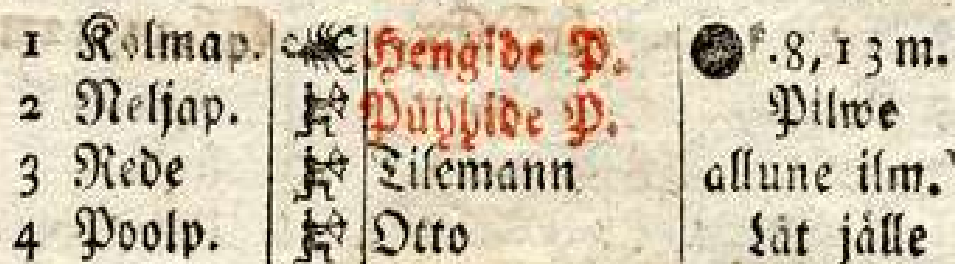 1 Kolmap. Hengide P. k.8,13m.
2 Neljap. Pühhide P. Pilwe
3 Rede Tilemann allune ilm.
4 Poolp. Otto Lät jälle